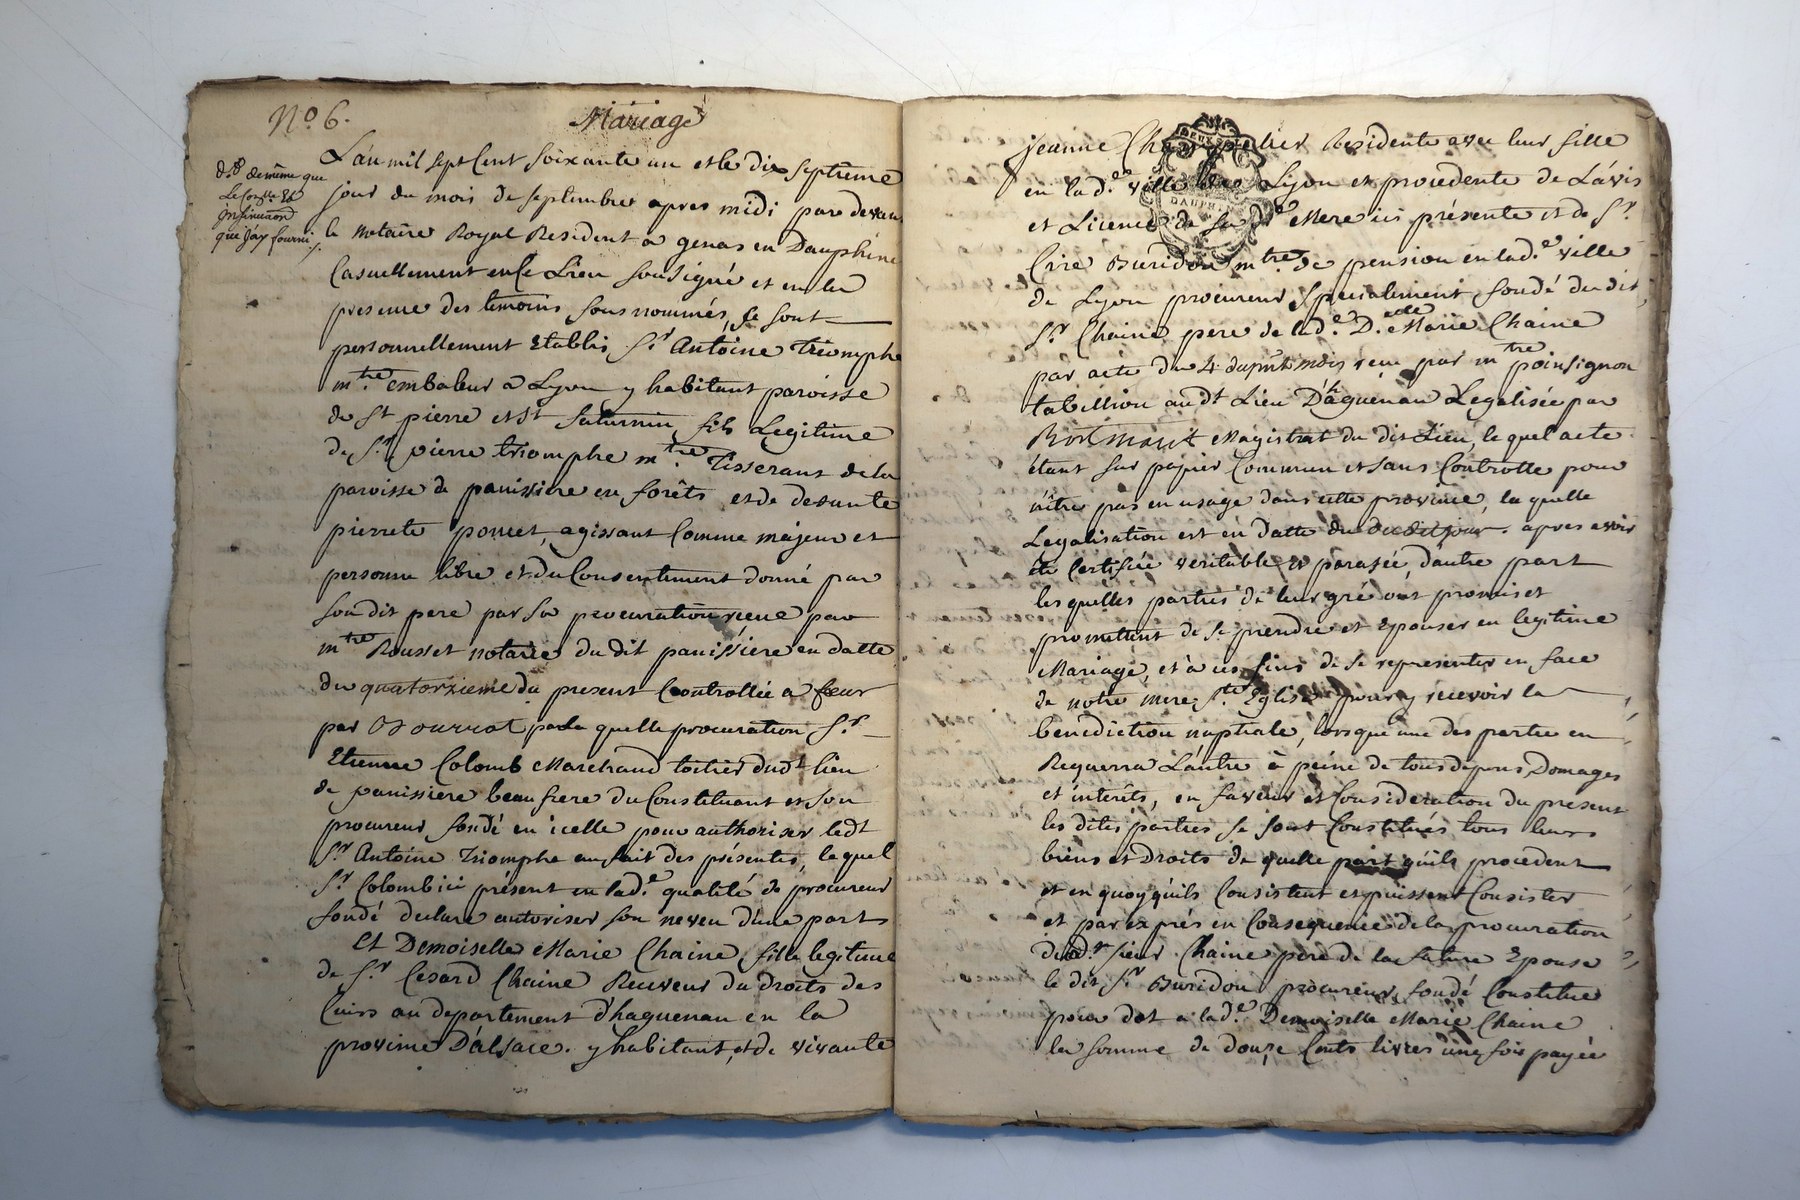 No. 6.
Mariage
dt de meme que
qui J'ay fourni
L'an mil sept Cent soixante un et le dix septieme
jour du mois de septembre apres midi par devant
le notaire Royal Resident a genas en Dauphiné
Casuellement en Ce Lieu soussigné et en la
presence des temoins sous nommés, se sont
personnellement Etablis, Sr. Antoine Triomphe
mtre. embaleur a Lyon y habitant paroisse
de St pierre et St Saturnin, fils Legitime
de Sr. pierre triomphe mtre. Tisserant de la
paroisse de panissiere en forêts et de defunte
pierrete poncet, agissant Comme majeur et
personne libre et du Consentement donné par
son dit pere par sa procuration reçue par
mtre Rousset notaire du dit panissière en datte
du quatorzieme du present Controllée a feur
par Bourrat par la quelle procuration Sr.
Etienne Colomb Marchand toilier dudt lieu
de panissiere beau frere du Constituant et son
procureur fondé en icelle pour authoriser ledt
Sr. Antoine Triomphe au fait des présentes, lequel
Sr. Colomb ici présent en lad.e qualité de procureur
fondé declare autoriser son neveu d'une part
Et Demoiselle Marie Chaine, fille legitime
de Sr. Cesard Chaine Receveur du droits des
Cuirs au departement d'haguenau en la
province D'alsace. y habitant, et de vivante
jeanne Residente avec leur fille
en lad.e ville de Lyon et procedente de L'avis
et Licence de sa de Mere ici présente et de Sr.
Cire Buridon mtre. de pension en lad.e ville
de Lyon procureur specialement fondé du dit
Sr. Chaine pere de lad.e D.elle Marie Chaine
par acte du 4 du psnt mois reçu par mtre poinsignon
tabellion audt Lieu D'haguenau Legalisée par
Magistrat du dit Lieu, le quel acte
étant sur papier Commun et sans Controlle pour
n'être pas en usage dans cette province, la quelle
Legalisation est en datte du dudit jour. apres avoir
été Certifiée veritable et parafée, d'autre part
lesquelles parties de leur gré ont promis et
promettent de se prendre et Epouser en legitime
Mariage, et à ces fins de se representer en face
de notre mere ste. Eglise pour y recevoir la
bénediction nuptiale, lorsque une des partie en
Requerra L'autre à peine de tous depens Domages
et interêts, en faveur et Consideration du present
les dites parties se sont Constitués tous leurs
biens et droits de quelle part qu'ils procedent
et en quoy qu'ils Consistent et puissent Consister
et par exprés en Consequence de la procuration
dud.t sieur Chaine pere de la future Epouse
le dit Sr. Buridon procureur fondé Constitue
pour dot a lad.e Demoiselle Marie Chaine
la somme de douze Cents livres une fois payée
DAUPHI